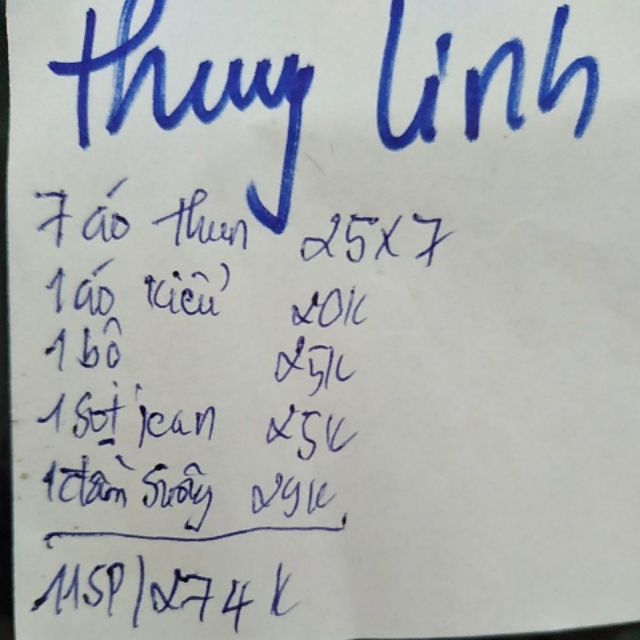 thuy linh
7 áo thun 25x7
1 áo kiểu 20k
1 bộ 25k
1 sọt jean 25k
1 đầm suông 29k
11SP/274k